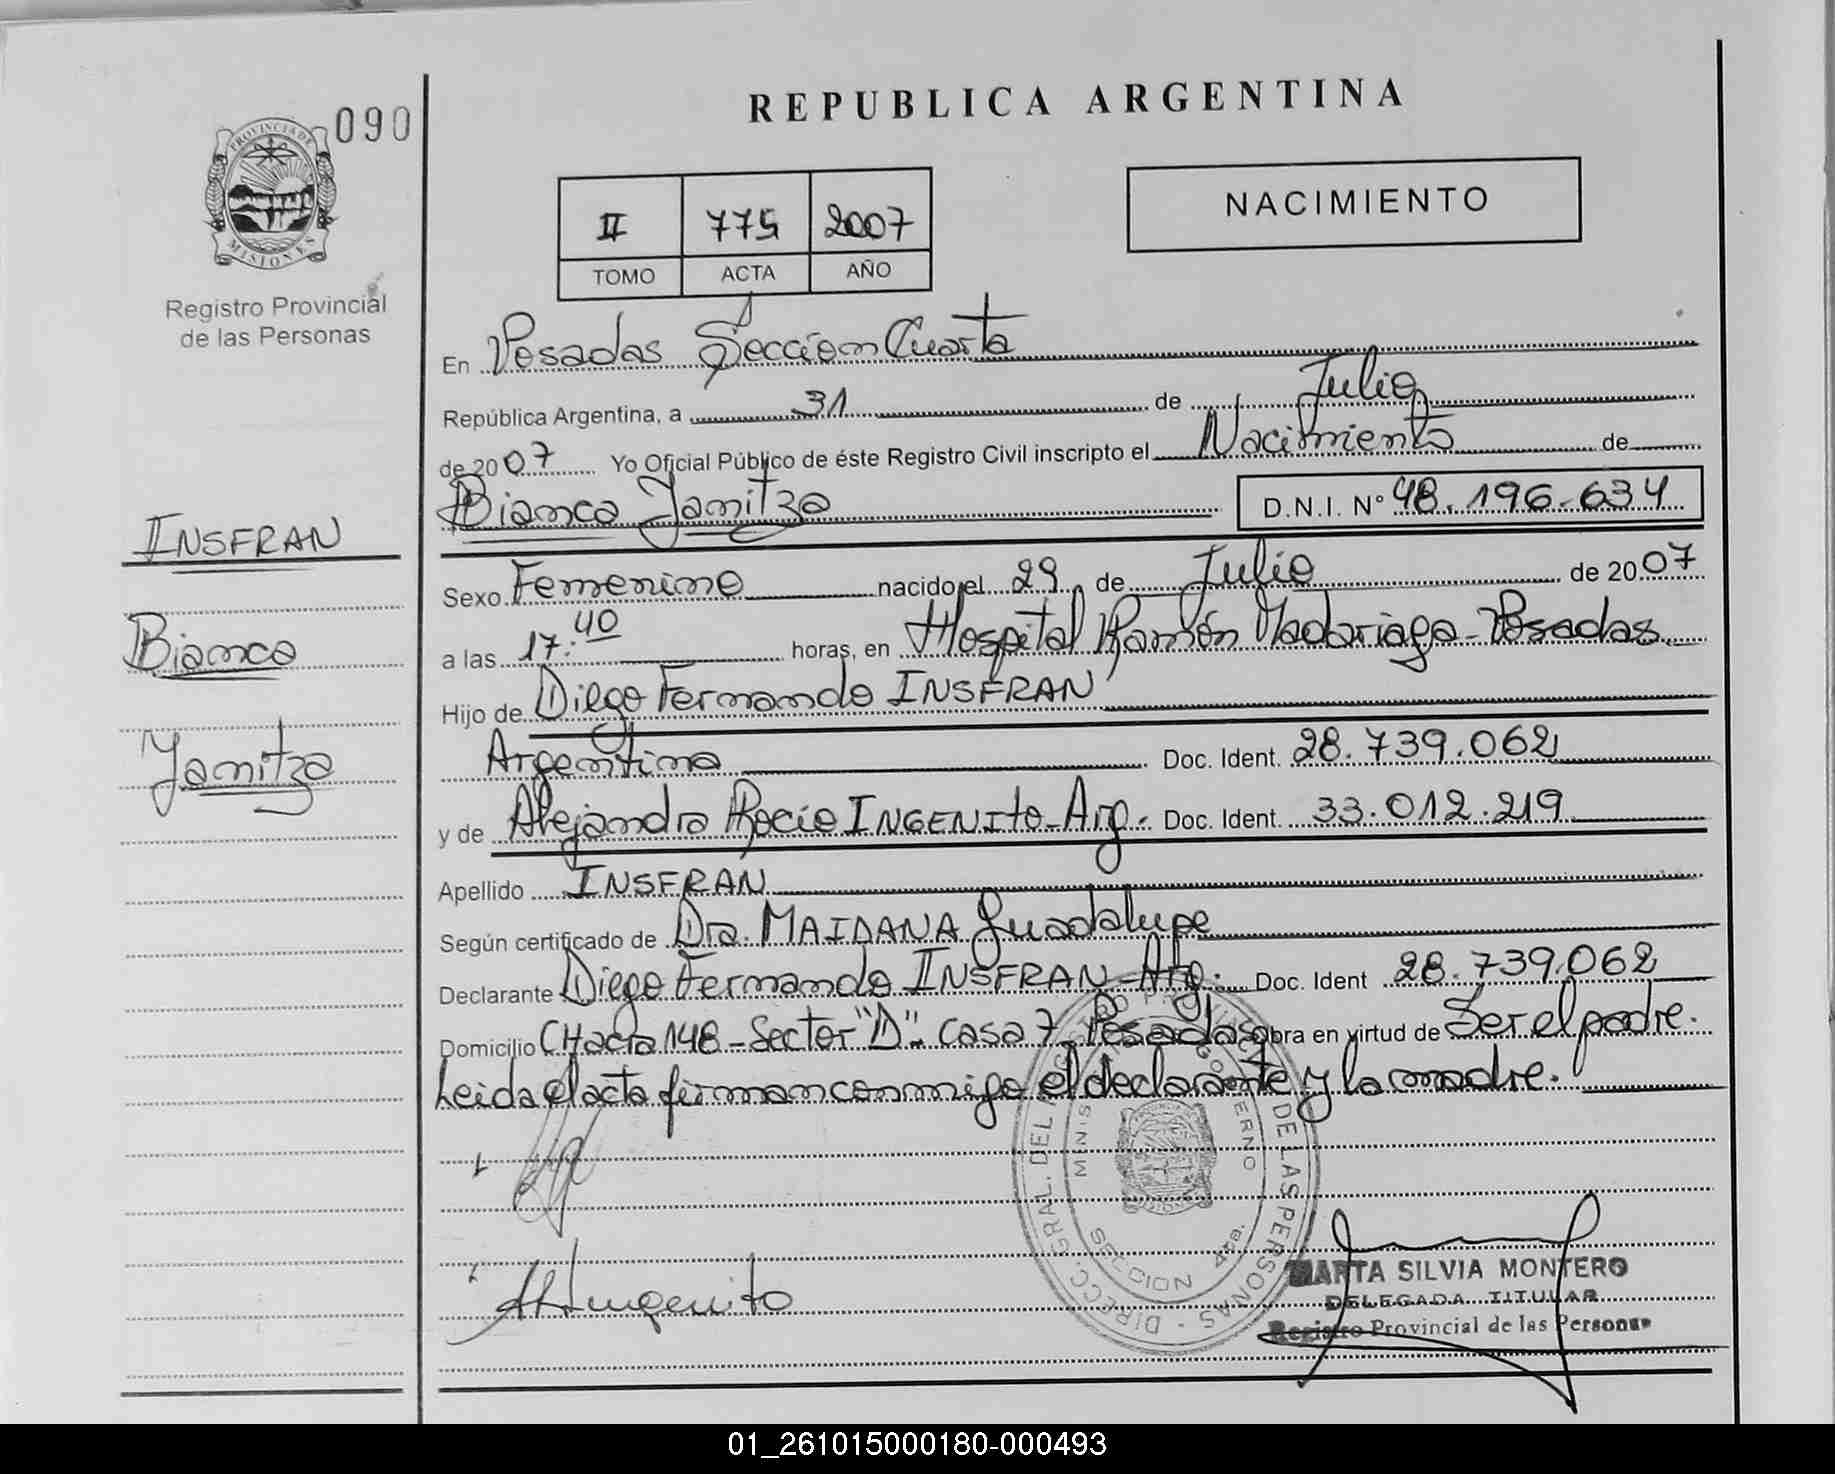 REPUBLICA ARGENTINA
090
PROVINCIA DE
MISIONES
Registro Provincial
de las Personas
II 775 2007
TOMO ACTA AÑO
NACIMIENTO
En Posadas Sección Cuarta
República Argentina, a 31 de Julio
de 2007 Yo Oficial Público de éste Registro Civil inscripto el Nacimiento de
Bianca Yanitza D.N.I. N° 48.196.634
INSFRAN
Bianca
Yanitza
Sexo Femenino nacido el 29 de Julio de 2007
a las 17:40 horas, en Hospital Ramón Madariaga - Posadas
Hijo de Diego Fernando INSFRAN
Argentina Doc. Ident. 28.739.062
y de Alejandra Rocio INGENITO - Arg. Doc. Ident. 33.012.219
Apellido INSFRAN
Según certificado de Dra. MAIDANA Guadalupe
Declarante Diego Fernando INSFRAN - Arg. Doc. Ident 28.739.062
Domicilio CHacra 148 - Sector "D" - Casa 7 - Posadas obra en virtud de Ser el padre.
Leida el acta firman conmigo el declarante y la madre.
DIRECC. GRAL. DEL REGISTRO PROVINCIAL DE LAS PERSONAS
SECCION 4ta.
ARIngenito
MARTA SILVIA MONTERO
DELEGADA TITULAR
Registro Provincial de las Personas
01_261015000180-000493